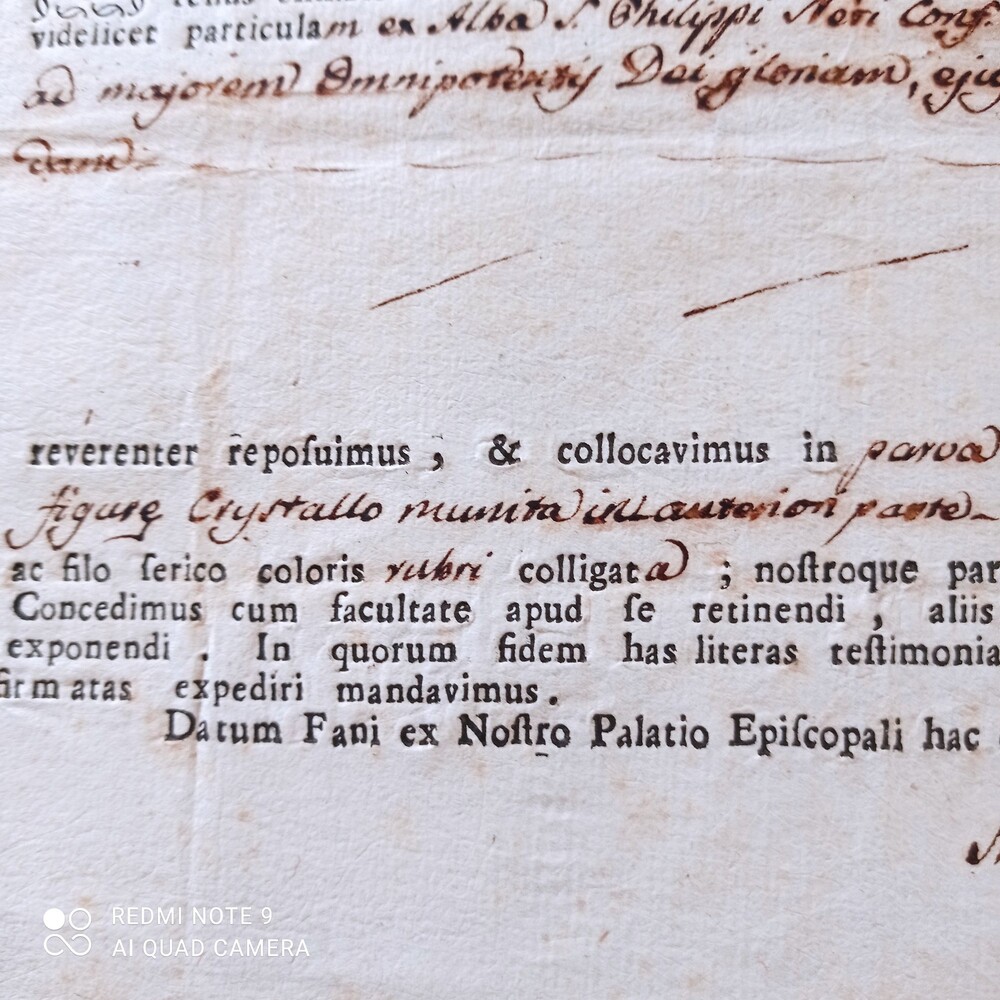 videlicet particulam ex Alba S. Philippi Neri Conf.
ad majorem Omnipotentis Dei gloriam, ejus
dam
reverenter repoſuimus , & collocavimus in parva
figurę Crystallo munita in anteriori parte
ac filo ſerico coloris rubri colligata ; noſtroque par
Concedimus cum facultate apud ſe retinendi , aliis
exponendi . In quorum fidem has literas teſtimonia
firmatas expediri mandavimus .
Datum Fani ex Noſtro Palatio Epiſcopali hac
REDMI NOTE 9
AI QUAD CAMERA